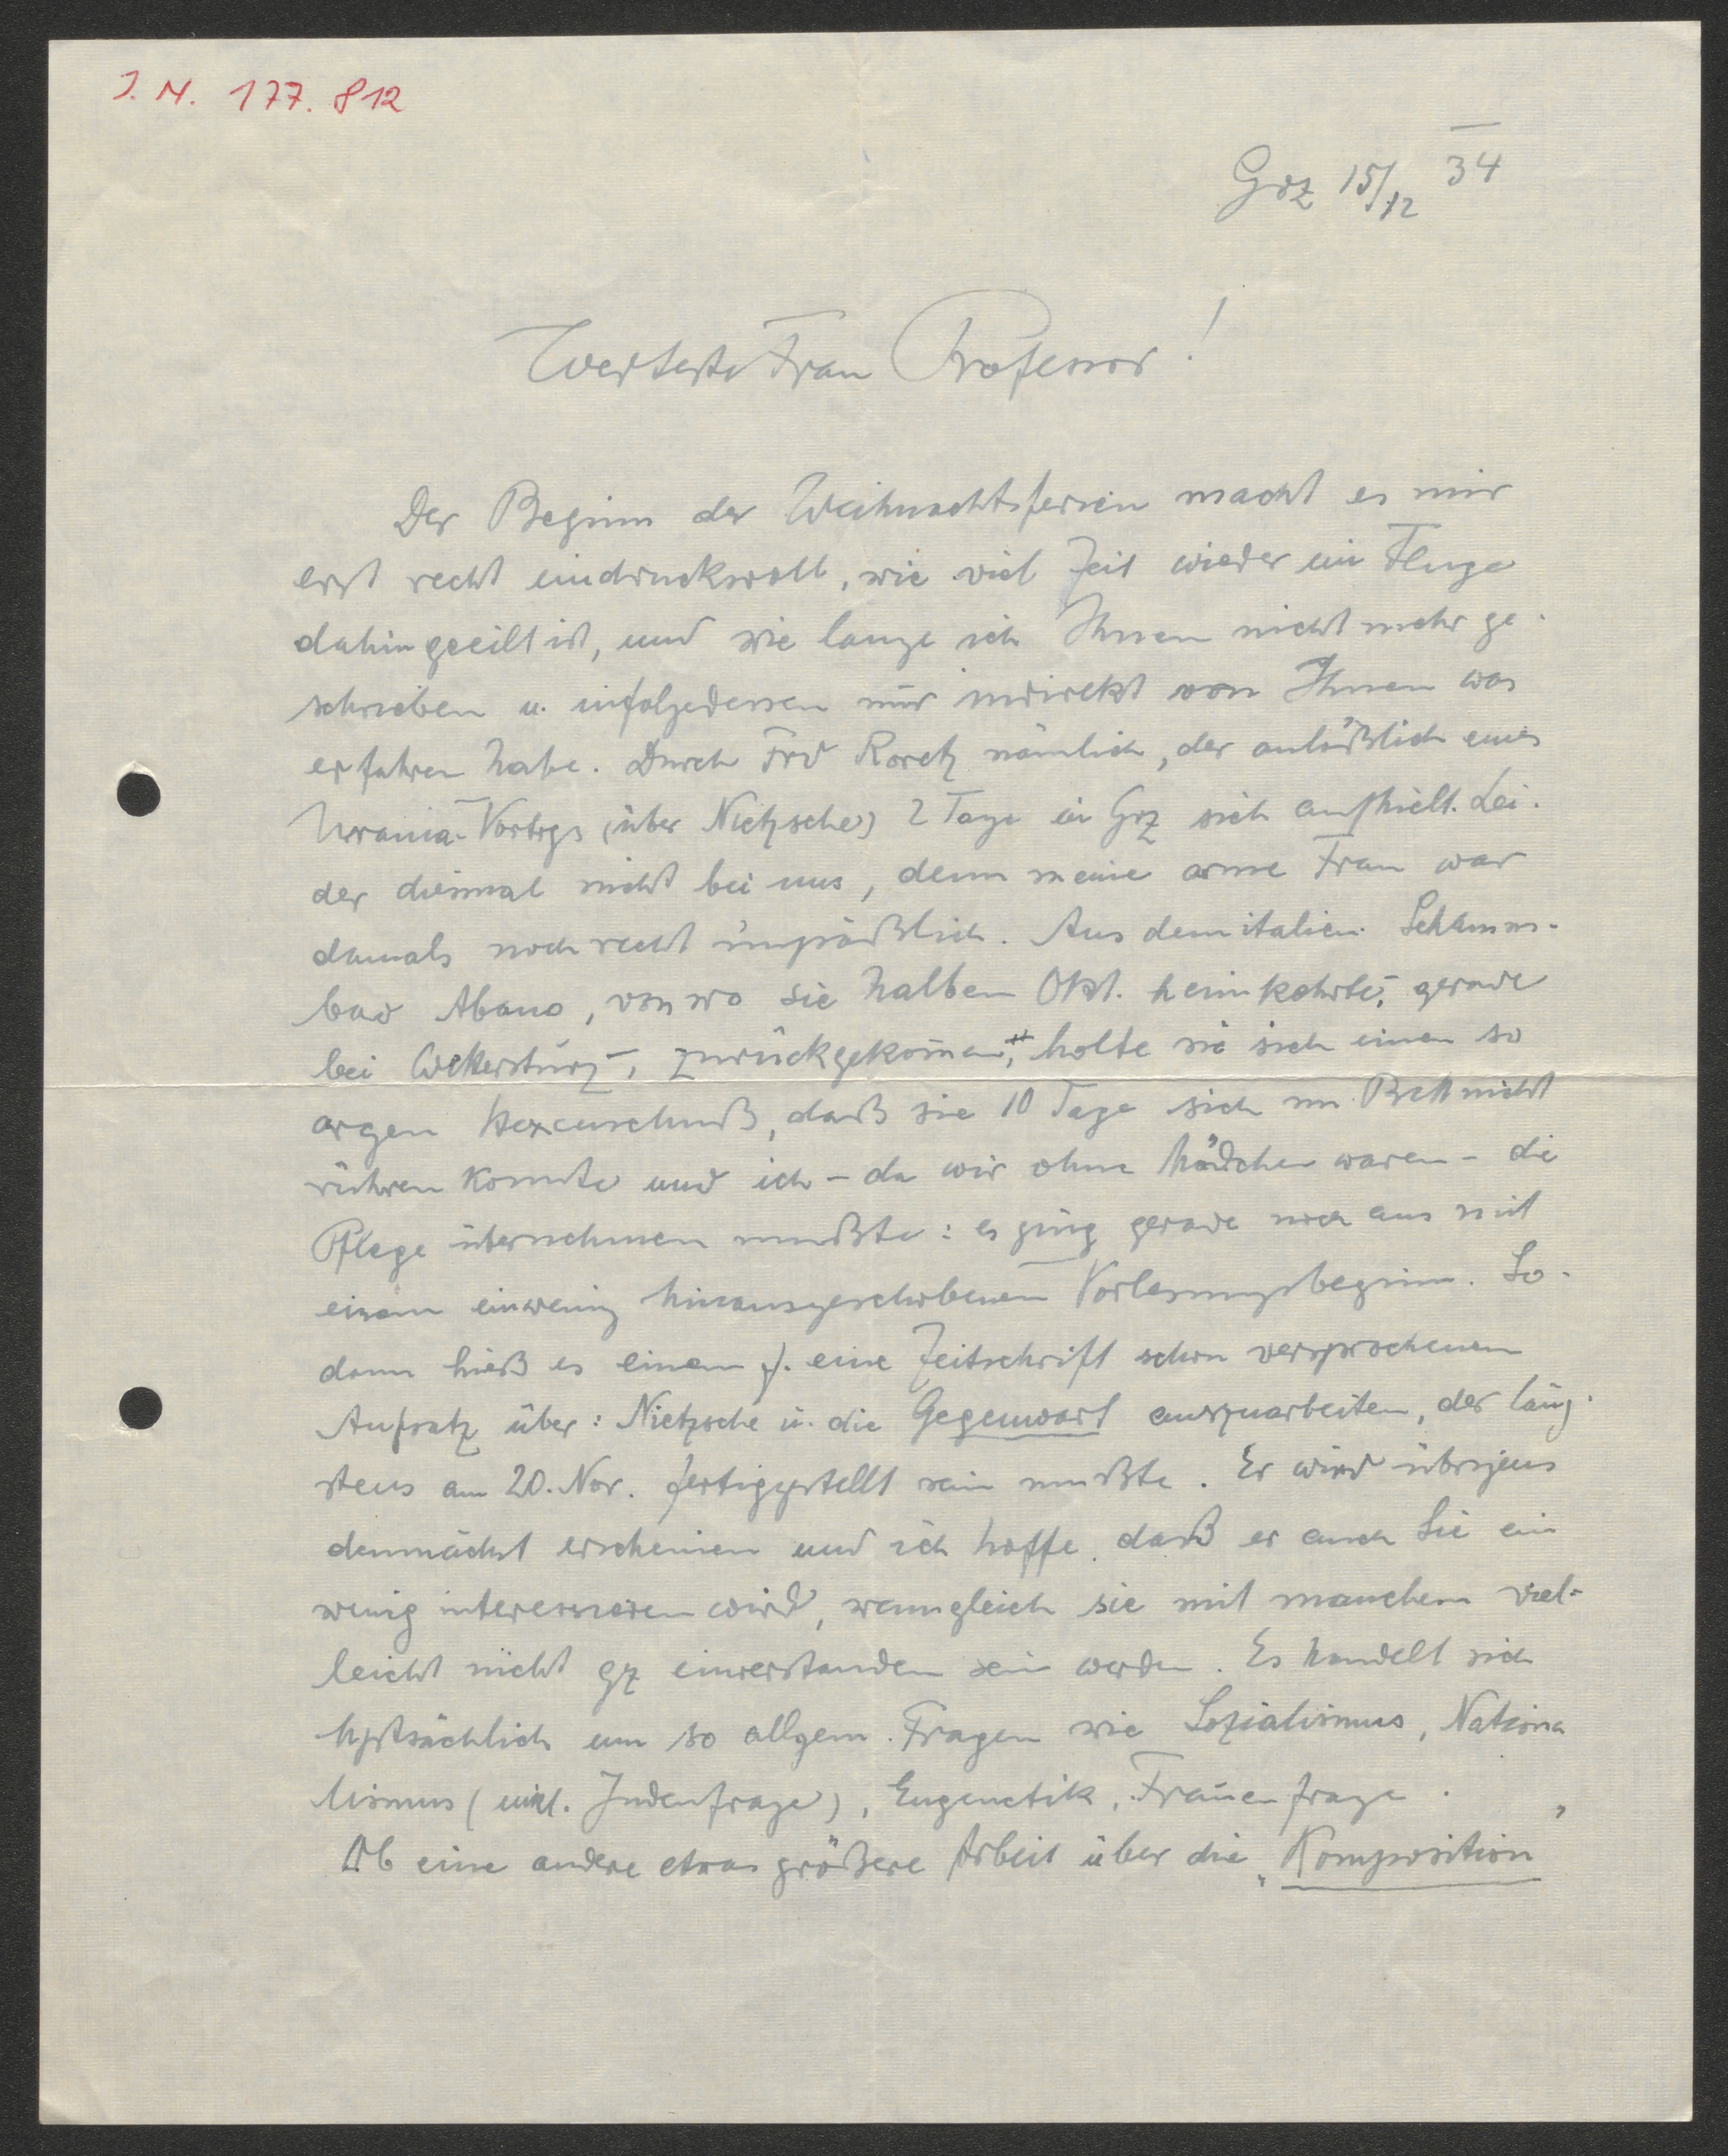 I. N. 177.812
Grz 15/12 34
Werteste Frau Professor!
Der Beginn der Weihnachtsferien macht es mir
erst recht eindrucksvoll, wie viel Zeit wieder im Fluge
dahingeeilt ist, und wie lange ich Ihnen nicht mehr ge-
schrieben u. infolgedessen nur indirekt von Ihnen was
erfahren habe. Durch Frd Roretz nämlich, der anläßlich eines
Urania-Vortrgs (über Nietzsche) 2 Tage in Grz sich aufhielt. Lei-
der diesmal nicht bei uns, denn meine arme Frau war
damals noch recht unpäßlich. Aus dem italien. Schlamm-
bad Abano, von wo sie halben Okt. heimkehrte, gerade
bei Wettersturz, zurückgekommen, holte sie sich einen so
argen Hexenschuß, daß sie 10 Tage sich im Bett nicht
rühren konnte und ich – da wir ohne Mädchen waren – die
Pflege übernehmen mußte: es ging gerade noch aus mit
einem einwenig hinausgeschobenen Vorlesungsbeginn. So-
dann hieß es einem f. eine Zeitschrift schon versprochenen
Aufsatz über: Nietzsche u. die Gegenwart auszuarbeiten, der läng-
stens am 20. Nov. fertiggestellt sein mußte. Er wird übrigens
demnächst erscheinen und ich hoffe, daß er auch Sie ein
wenig interessieren wird, wenngleich sie mit manchem viel-
leicht nicht gz einverstanden sein werden. Es handelt sich
hptsächlich um so allgem. Fragen wie Sozialismus, Nationa
lismus (inkl. Judenfrage), Eugenetik, Frauenfrage.
Ob eine andere etwas größere Arbeit über die „Komposition"